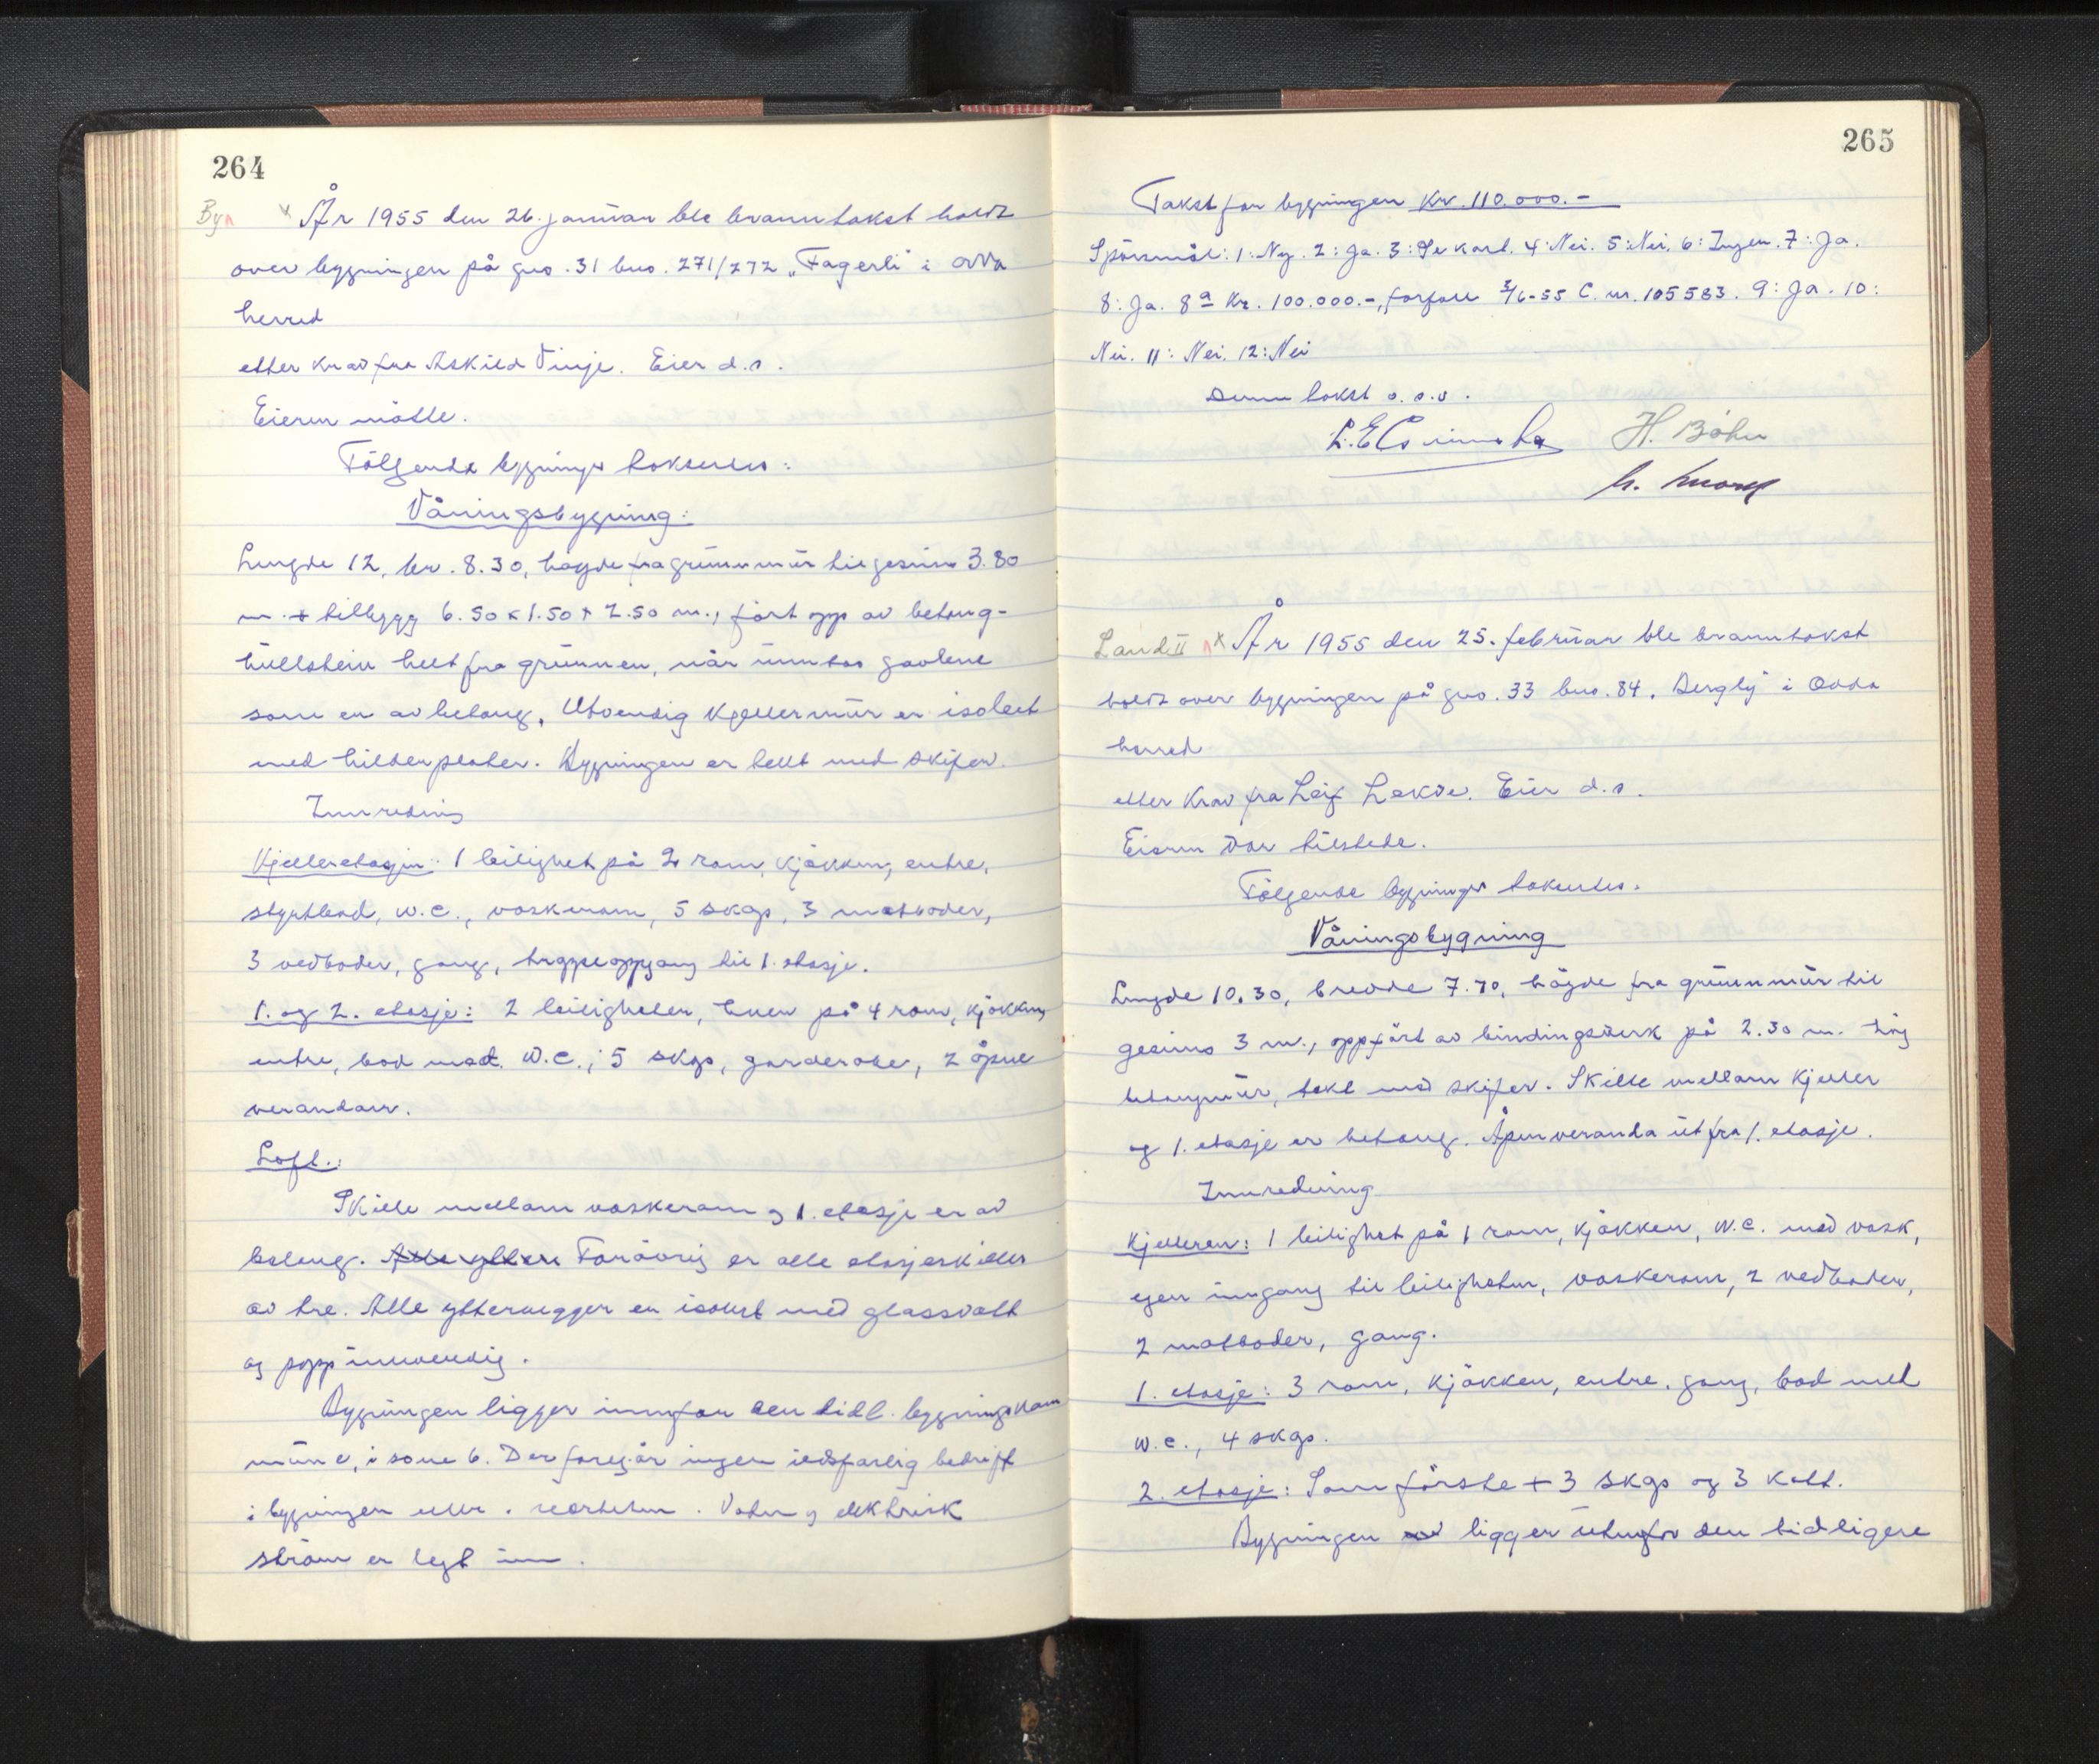 264
By
År 1955 den 26. januar ble branntakst holdt
over bygningen på gno. 31 bno. 271/272 „Fagerli" i Odda
herred
etter krav fra Askild Vinje. Eier d.s.
Eieren møtte.
Følgende bygninger takseres:
Våningsbygning:
Lengde 12, br. 8.30, høyde fra grunnmur til gesims 3.80
m. + tilbygg 6.50 x 1.50 + 2.50 m., ført opp av betong-
hullstein helt fra grunnen, når unntas gavlene
som er av betong. Utvendig kjellermur er isolert
med plater. Bygningen er tekt med skifer.
Innredning
Kjelleretasjen: 1 leilighet på 2 rom, kjøkken, entre,
styrtbad, w.c., vaskerom, 5 skap, 3 matboder,
3 vedboder, gang, trappeoppgang til 1. etasje.
1. og 2. etasje: 2 leiligheter, hver på 4 rom, kjøkken,
entre, bad med w.c., 5 skap, garderobe, 2 åpne
verandaer.
Loft.:
Skille mellom vaskerom og 1. etasje er av
betong. Alle ytter Forøvrig er alle etasjeskiller
av tre. Alle yttervegger er isolert med glassvatt
og papp innvendig.
Bygningen ligger innfor den tidl. bygningskom
mune, i sone 6. Der foregår ingen ildsfarlig bedrift
i bygningen eller i nærheten. Vatn og elektrisk
strøm er lagt inn.
265
Takst for bygningen Kr. 110.000.-
Spörsmål: 1: Ny. 2: Ja. 3: Se kart. 4: Nei. 5: Nei. 6: Ingen. 7: Ja.
8: Ja. 8a Kr. 100.000.-, forfall 3/6-55 C. nr. 105583. 9: Ja. 10:
Nei. 11: Nei. 12: Nei
Denne takst o.s.v.
H. Böhn
Land II
År 1955 den 25. februar ble branntakst
holdt over bygningen på gno. 33 bno. 84. „Bergly" i Odda
herred
etter krav fra Leif Lekve. Eier d.s.
Eieren var tilstede.
Følgende bygninger takseres.
Våningsbygning
Lengde 10.30, bredde 7.70, høyde fra grunnmur til
gesims 3 m., oppført av bindingsverk på 2.30 m. høy
betongmur, tekt med skifer. Skille mellom kjeller
og 1. etasje er betong. Åpen veranda ut fra 1. etasje.
Innredning
Kjelleren: 1 leilighet på 1 rom, kjøkken, w.c. med vask,
egen inngang til leiligheten, vaskerom, 2 vedboder,
2 matboder, gang.
1. etasje: 3 rom, kjøkken, entre, gang, bad med
w.c., 4 skap.
2. etasje: Som første + 3 skap og 3 kott.
Bygningen ligger utenfor den tidligere